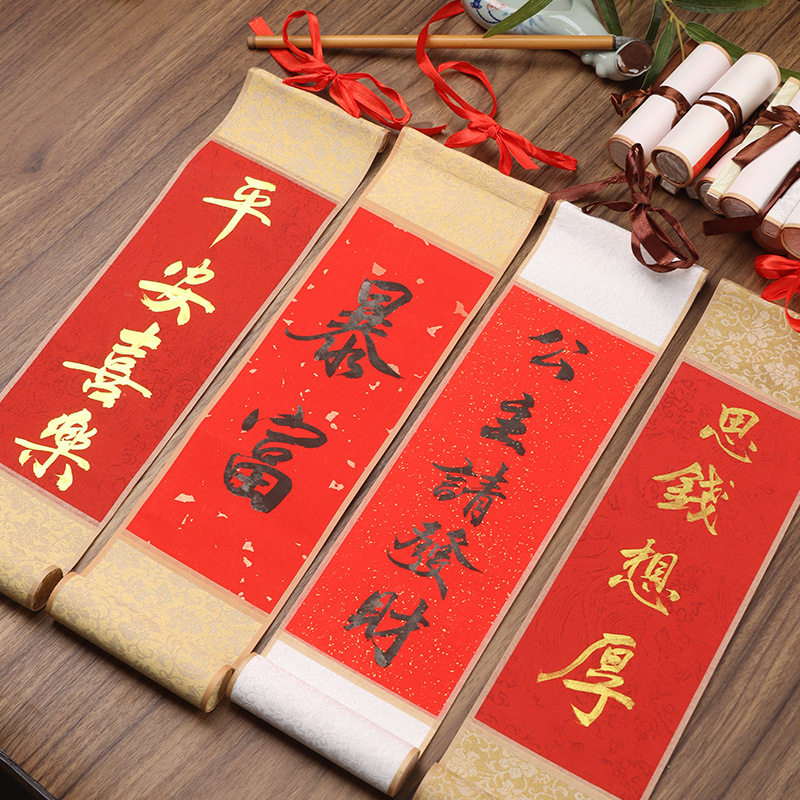 平安喜樂
暴富
公主請發財
思錢想厚